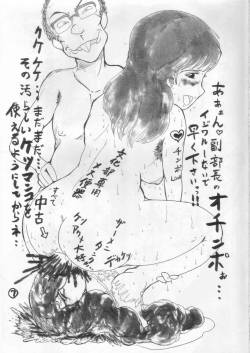 あぁぁん♡副部長の
イジワルしないで
早く下さいっ!!
オチンポぉ…
ケケケ…まだまだ…
その汚らしいケツマンコを
使えるようにしてからネ…
♡チンポ♡
文化部専用
大便器
すべて
中古
ケツ
アクメ大好き